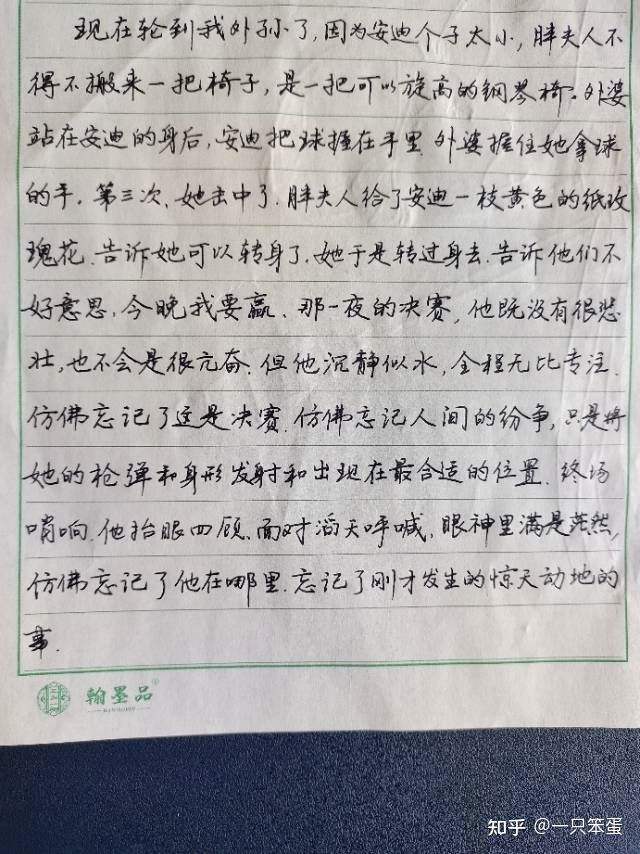 现在轮到我外孙了,因为安迪个子太小,胖夫人不
得不搬来一把椅子,是一把可以旋高的钢琴椅。外婆
站在安迪的身后,安迪把球握在手里.外婆握住她拿球
的手.第三次、她击中了.胖夫人给了安迪一枝黄色的纸玫
瑰花.告诉她可以转身了.她于是转过身去.告诉他们不
好意思,今晚我要赢、那一夜的决赛,他既没有很悲
壮,也不会是很亢奋.但他沉静似水,全程无比专注.
仿佛忘记了这是决赛.仿佛忘记人间的纷争,只是将
她的枪弹和身形发射和出现在最合适的位置.终场
哨响.他抬眼四顾、面对滔天呼喊,眼神里满是茫然,
仿佛忘记了他在哪里.忘记了刚才发生的惊天动地的
事.
翰墨品
知乎 @一只笨蛋